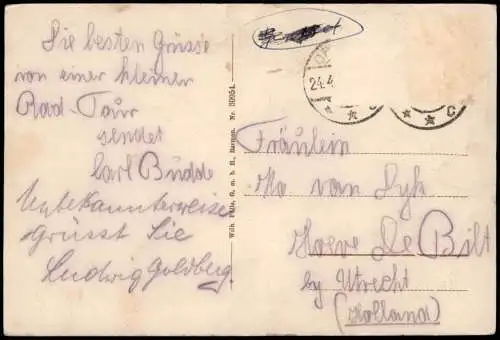 Die besten Grüsse
von einer kleinen
Rad-Tour
sendet
Carl Budde
Unbekannterweise
Grüsst Sie
Ludwig Goldberg.
Wilh. Fülle, G. m. b. H., Barmen. Nr. 30954.
24.4
* * C
* * C
Fräulein
van Dyk
Hoeve De Bilt
by Utrecht
(Holland)